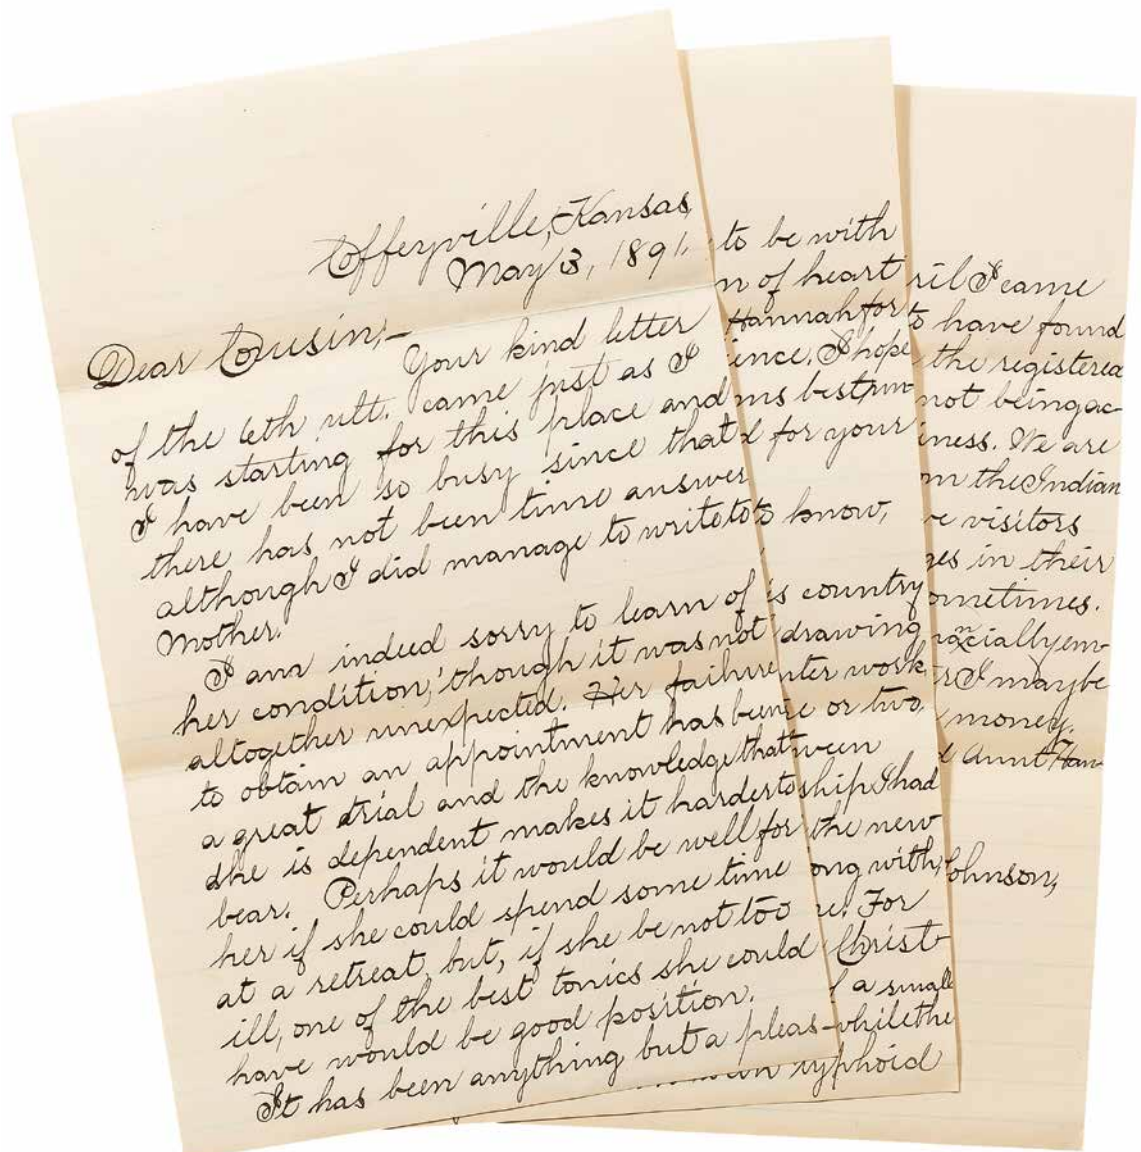 Coffeyville, Kansas,
May 3, 1891.
Dear Cousin;—
Your kind letter
of the 6th ult. came just as I
was starting for this place and
I have been so busy since that
there has not been time answer
although I did manage to write to
Mother.
I am indeed sorry to learn of
her condition, 'though it was not
altogether unexpected. Her failure
to obtain an appointment has been
a great trial and the knowledge that
she is dependent makes it harder to
bear. Perhaps it would be well for
her if she could spend some time
at a retreat, but, if she be not too
ill, one of the best tonics she could
have would be good position.
It has been anything but a pleas-
to be with
n of heart
Hannah for
ience. I hope
ms best
for your
know,
is country
drawing
nter work
or two,
ween
ship I had
the new
ong with,
re. For
Christ-
a small
while the
typhoid
ril I came
to have found
the registered
not being ac-
iness. We are
m the Indian
ve visitors
ges in their
ometimes.
ancially em-
I may be
money.
Aunt Han-
Johnson,